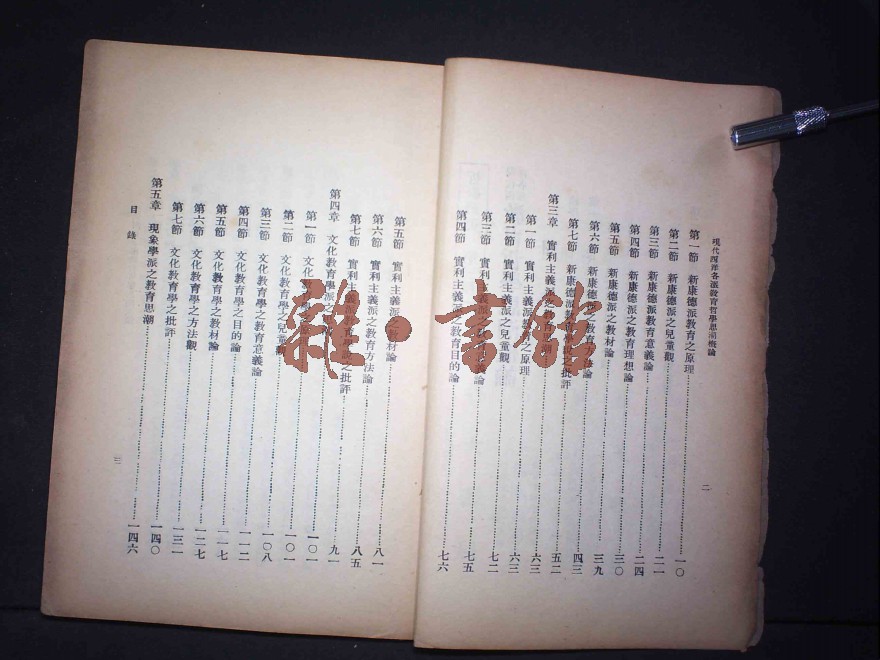 現代西洋各派教育哲學思潮概論
第一節 新康德派教育之原理……一〇
第二節 新康德派之兒童觀……二一
第三節 新康德派教育意義論……二四
第四節 新康德派之教育理想論……三〇
第五節 新康德派之教材論……三九
第六節 新康德派教育論……四三
第七節 新康德派教育學說之批評……五二
第三章 實利主義派之教育思潮……六三
第一節 實利主義派教育之原理……六三
第二節 實利主義派之兒童觀……七二
第三節 實利主義派教育意義論……七五
第四節 實利主義派之教育目的論……七六
二
第五節 實利主義派之教材論……八一
第六節 實利主義派之教育方法論……八五
第七節 實利主義派教育學說之批評……九一
第四章 文化教育學派之……一〇一
第一節 文化教育學之……一〇一
第二節 文化教育學之兒童觀……一〇八
第三節 文化教育學之教育意義論……一一二
第四節 文化教育學之目的論……一一七
第五節 文化教育學之教材論……一二七
第六節 文化教育學之方法觀……一三一
第七節 文化教育學之批評……一四〇
第五章 現象學派之教育思潮……一四六
目錄
三
雜·書館